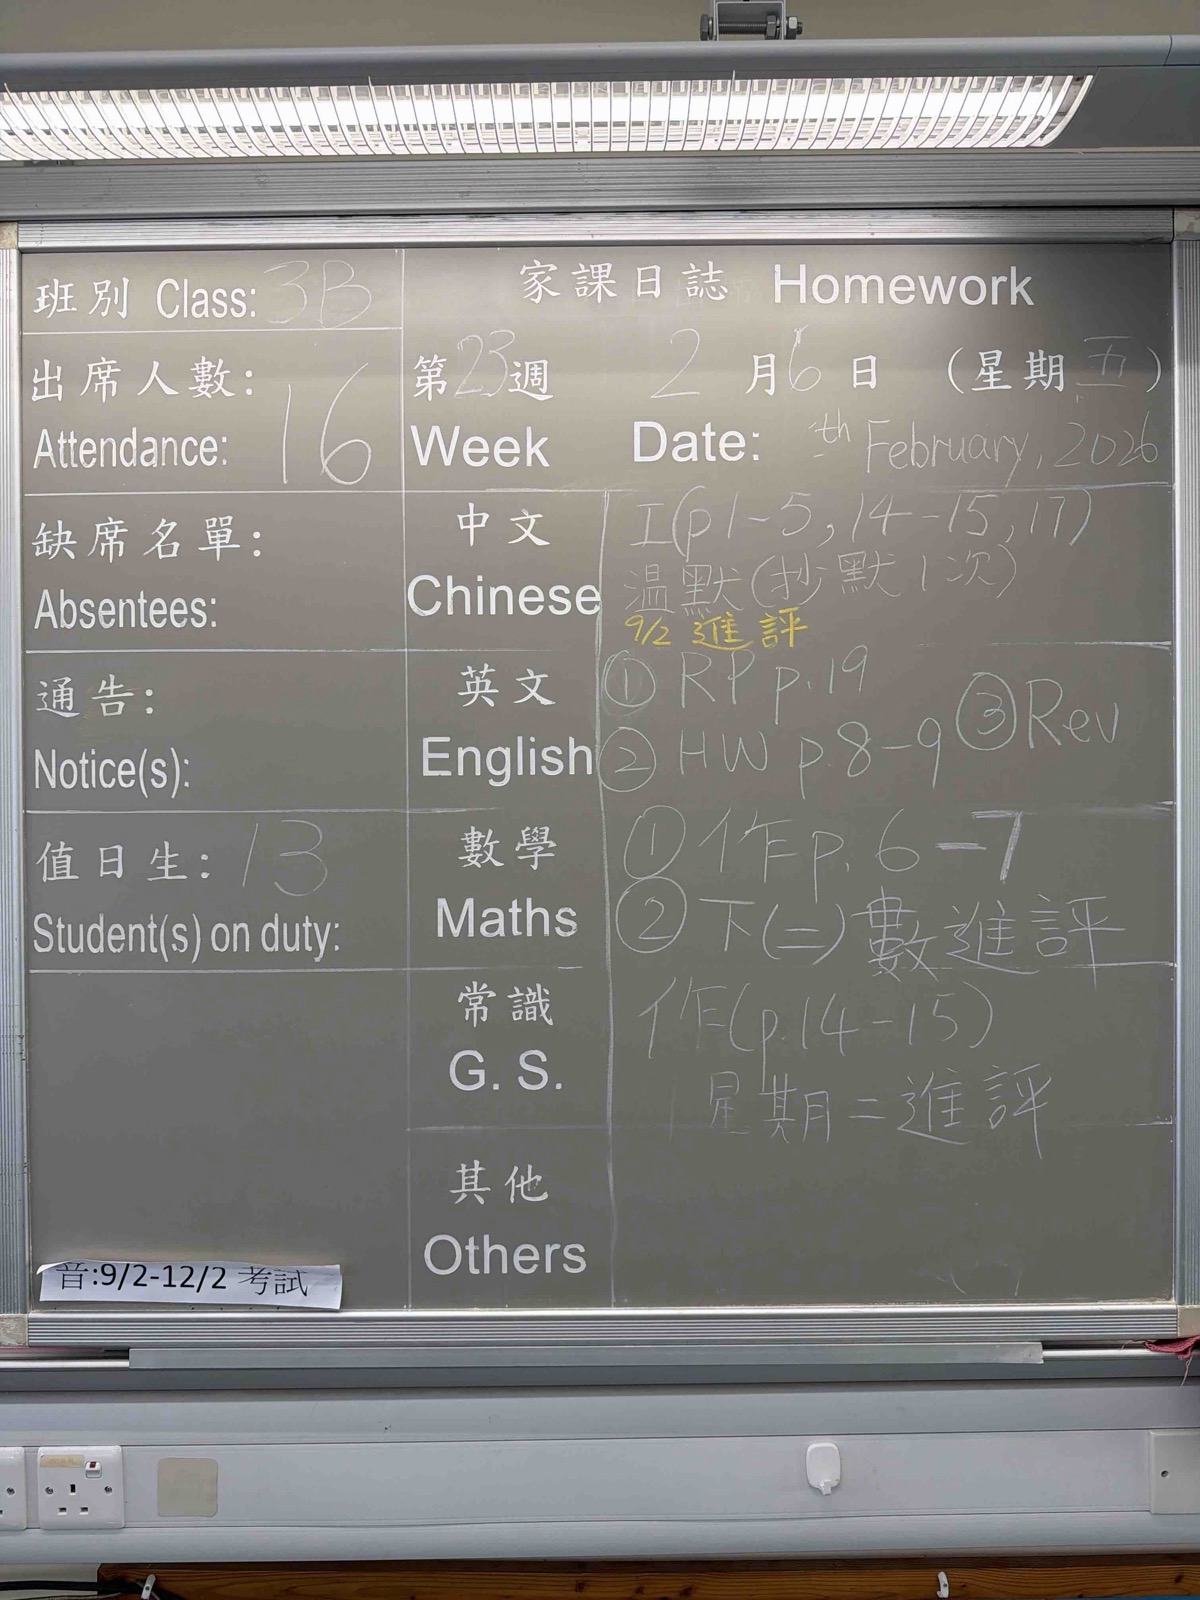 班別 Class: 3B
出席人數:
Attendance: 16
缺席名單:
Absentees:
通告:
Notice(s):
值日生: 13
Student(s) on duty:
音:9/2-12/2 考試
家課日誌 Homework
第23週 2月6日 (星期五)
Week Date: th February, 2026
中文
Chinese
I(p1-5,14-15,17)
温默(抄默1次)
9/2 進評
英文
English
① RP p.19
② HW p.8-9 ③Rev
數學
Maths
① 作p.6-7
② 下(二)數進評
常識
G. S.
作(p.14-15)
星期二進評
其他
Others